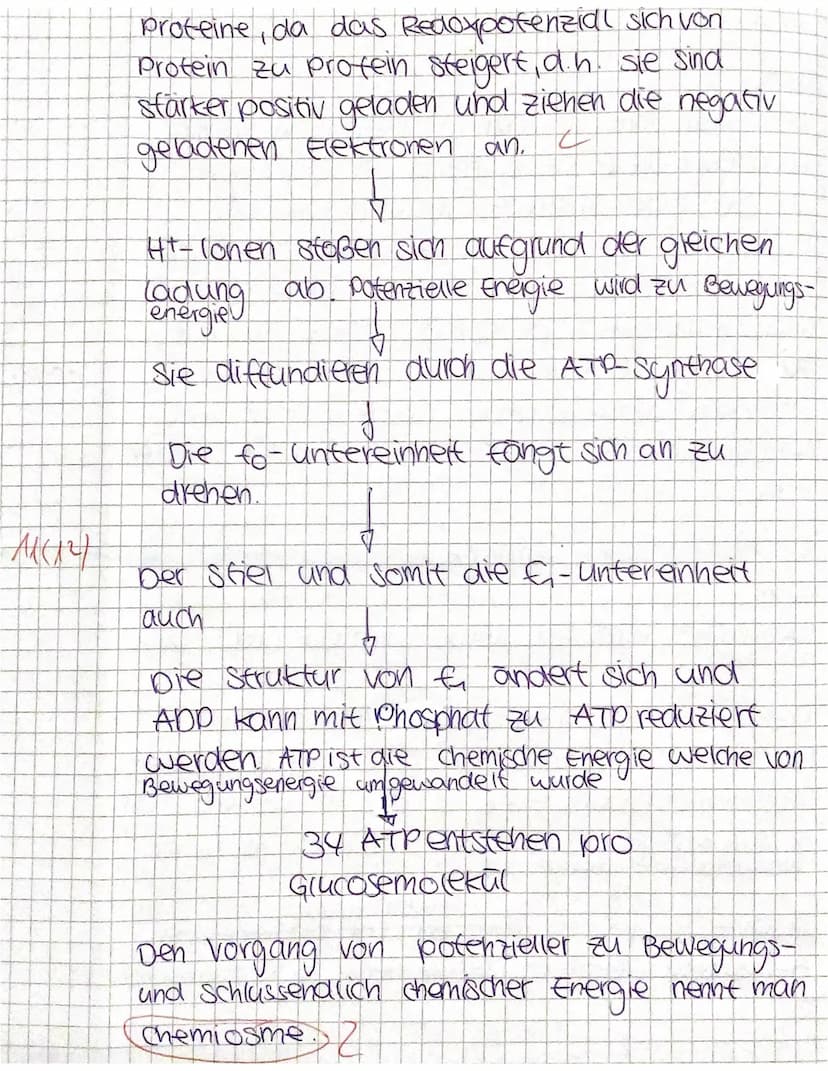 Proteine, da das Redoxpotenzial sich von
Protein zu Protein steigert, d.h. sie sind
stärker positiv geladen und ziehen die negativ
geladenen Elektronen an.
H+-Ionen stoßen sich aufgrund der gleichen
Ladung ab. Potenzielle Energie wird zu Bewegungs-
energie
Sie diffundieren durch die ATP-Synthase
Die f0-Untereinheit fängt sich an zu
drehen.
11(12)
Der Stiel und somit die f1-Untereinheit
auch
Die Struktur von f1 ändert sich und
ADP kann mit Phosphat zu ATP reduziert
werden. ATP ist die chemische Energie welche von
Bewegungsenergie umgewandelt wurde
34 ATP entstehen pro
Glucosemolekül
Den Vorgang von potenzieller zu Bewegungs-
und schlussendlich chemischer Energie nennt man
Chemiosme.